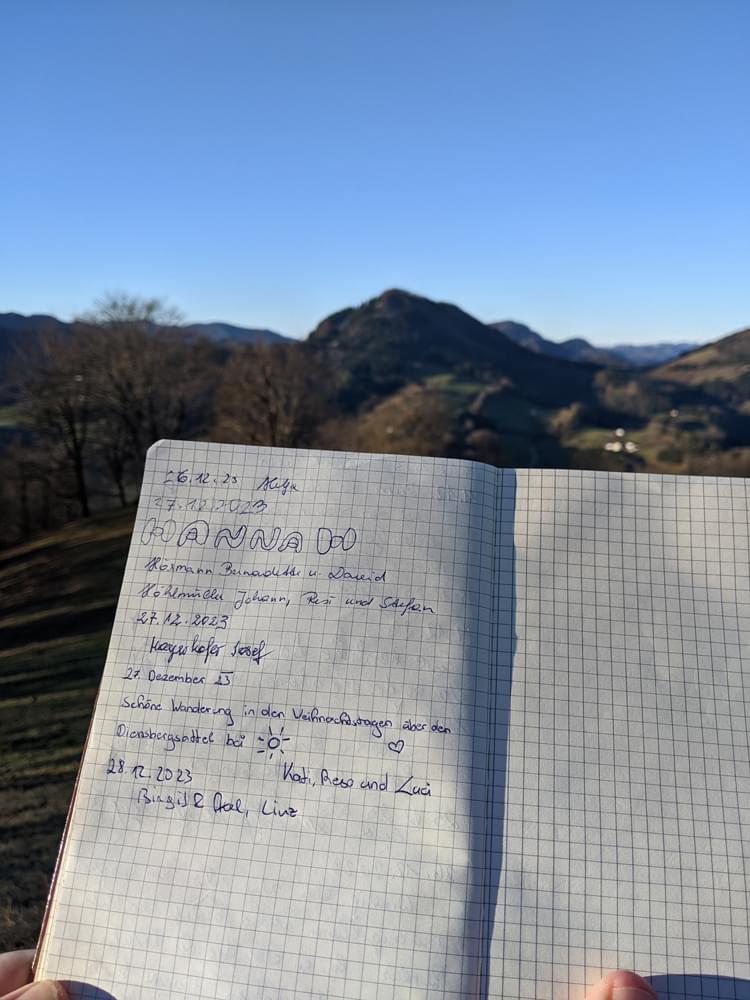 26.12.23
27.12.2023
HANNAH
Hörmann Bernadette u. David
Johann, Resi und Stefan
27.12.2023
Josef
27. Dezember 23
Schöne Wanderung in den Weihnachtstagen über den
bei
Kati, Reso und Luci
28.12.2023
Birgit & Axel, Linz